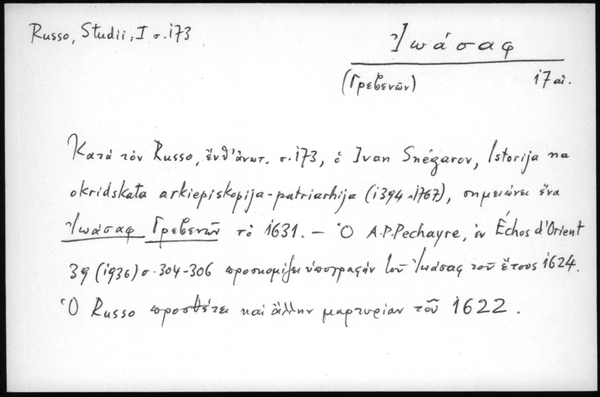 Russo, Studii, I σ. 173
Ἰωάσαφ
(Γρεβενῶν) 17 αἰ.
Κατὰ τὸν Russo, ἔνθ' ἀνωτ. σ. 173, ὁ Ivan Snégarov, Istorija na
okridskata arkiepiskopija-patriarhija (1394-1767), σημειώνει ἕνα
Ἰωάσαφ Γρεβενῶν τὸ 1631. — Ὁ A.P. Pechayre, ἐν Échos d'Orient
39 (1936) σ. 304-306 προσκομίζει ὑπογραφὴν τοῦ Ἰωάσαφ τοῦ ἔτους 1624.
Ὁ Russo προσθέτει καὶ ἄλλην μαρτυρίαν τοῦ 1622.